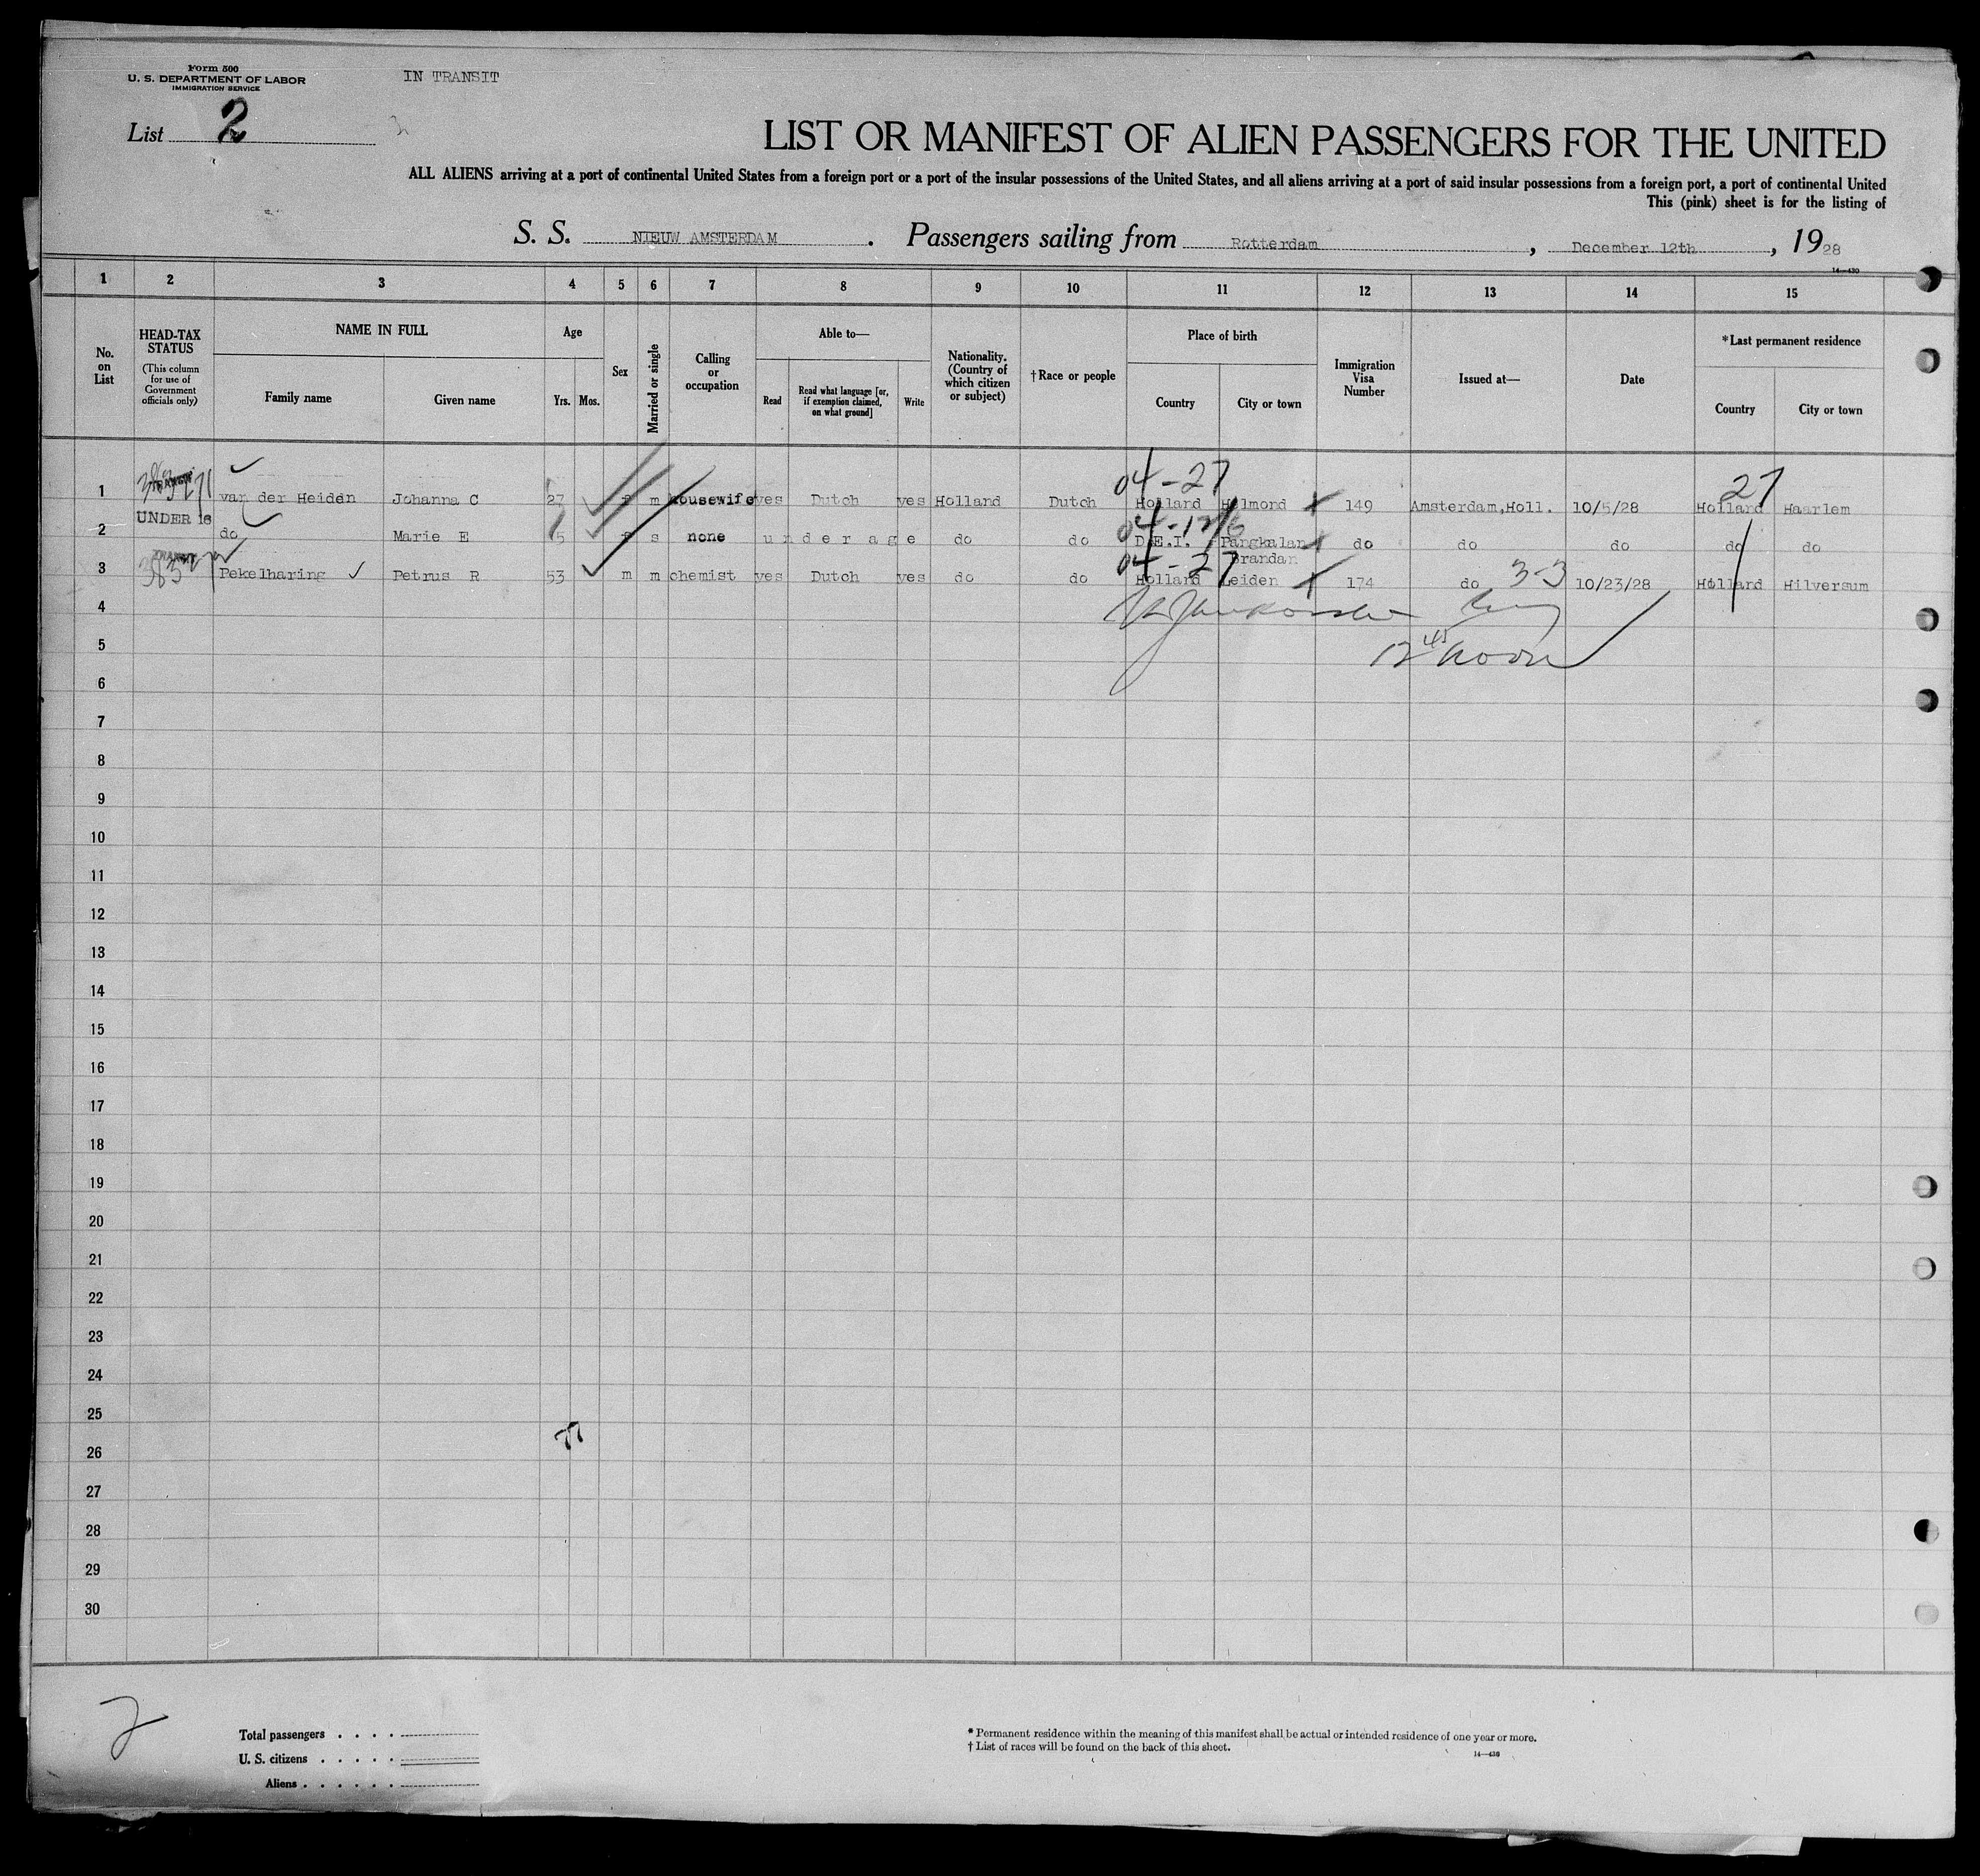 Form 500
U. S. DEPARTMENT OF LABOR
IMMIGRATION SERVICE
IN TRANSIT
List 2
LIST OR MANIFEST OF ALIEN PASSENGERS FOR THE UNITED
ALL ALIENS arriving at a port of continental United States from a foreign port or a port of the insular possessions of the United States, and all aliens arriving at a port of said insular possessions from a foreign port, a port of continental United
This (pink) sheet is for the listing of
S. S. NIEUW AMSTERDAM . Passengers sailing from Rotterdam , December 12th , 1928
14—430
1 2 3 4 5 6 7 8 9 10 11 12 13 14 15
No. on List
HEAD-TAX STATUS
(This column for use of Government officials only)
NAME IN FULL
Family name Given name
Age
Yrs. Mos.
Sex
Married or single
Calling or occupation
Able to—
Read
Read what language [or, if exemption claimed, on what ground]
Write
Nationality. (Country of which citizen or subject)
†Race or people
Place of birth
Country City or town
Immigration Visa Number
Issued at—
Date
*Last permanent residence
Country City or town
04-27 27
1 van der Heiden Johanna C 27 f m housewife yes Dutch yes Holland Dutch Holland Helmond 149 Amsterdam,Holl. 10/5/28 Holland Haarlem
UNDER 16
2 do Marie E 5 f s none under age do do D.E.I. Pangkalan Brandan do do do do do
04-27
3 Pekelharing Petrus R 53 m m chemist yes Dutch yes do do Holland Leiden 174 do 3-3 10/23/28 Holland Hilversum
4
5 12 45 noon
6
7
8
9
10
11
12
13
14
15
16
17
18
19
20
21
22
23
24
25
26
27
28
29
30
2
Total passengers . . . .
U. S. citizens . . . . .
Aliens . . . . . .
* Permanent residence within the meaning of this manifest shall be actual or intended residence of one year or more.
† List of races will be found on the back of this sheet.
14—430